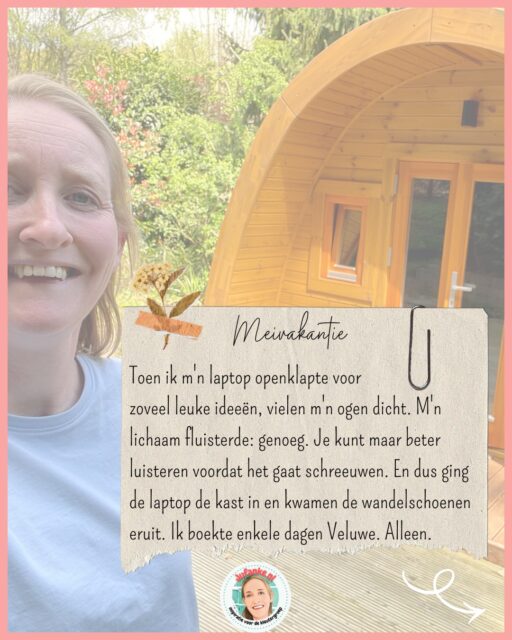 Meivakantie
Toen ik m'n laptop openklapte voor
zoveel leuke ideeën, vielen m'n ogen dicht. M'n
lichaam fluisterde: genoeg. Je kunt maar beter
luisteren voordat het gaat schreeuwen. En dus ging
de laptop de kast in en kwamen de wandelschoenen
eruit. Ik boekte enkele dagen Veluwe. Alleen.
jufanke.nl
inspiratie voor de kleutergroep